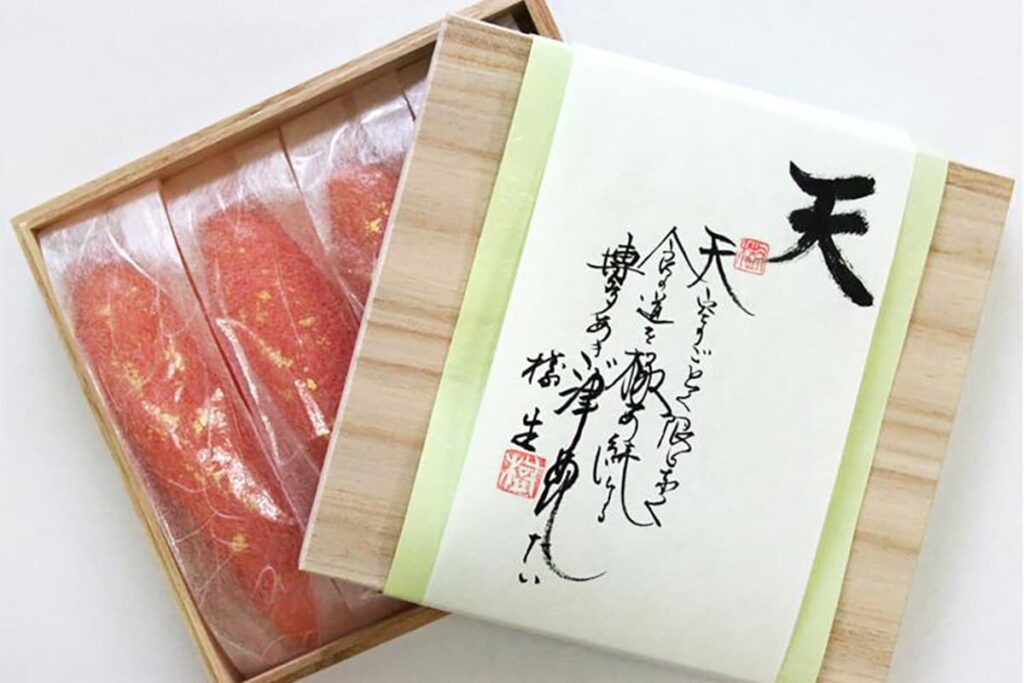 天
天空のごとく限りなく
食の道を極め続ける
博多あき津゛めんたい
樹生